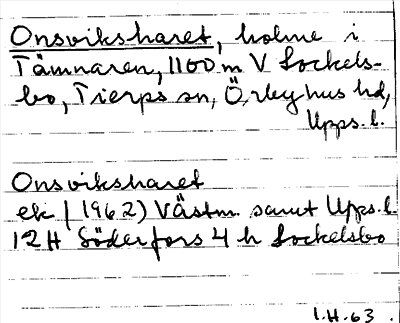 Onsviksharet, holme i
Tämnaren, 1100 m V Sockels-
bo, Tierps sn, Örbyhus hd,
Upps. l.
Onsviksharet
ek (1962) Västm. samt Upps. l.
12H Söderfors 4 h Sockelsbo
I.H. 63.